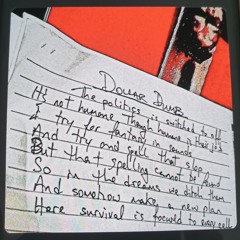 Dollar Dumb
The politics is switched to off
It's not humane though humans is their job
I try for fantasy in sounds
And try and spell that slap
But that spelling cannot be found
So in the dreams we ditch them
And somehow make a new plan
Here survival is focused to every cell